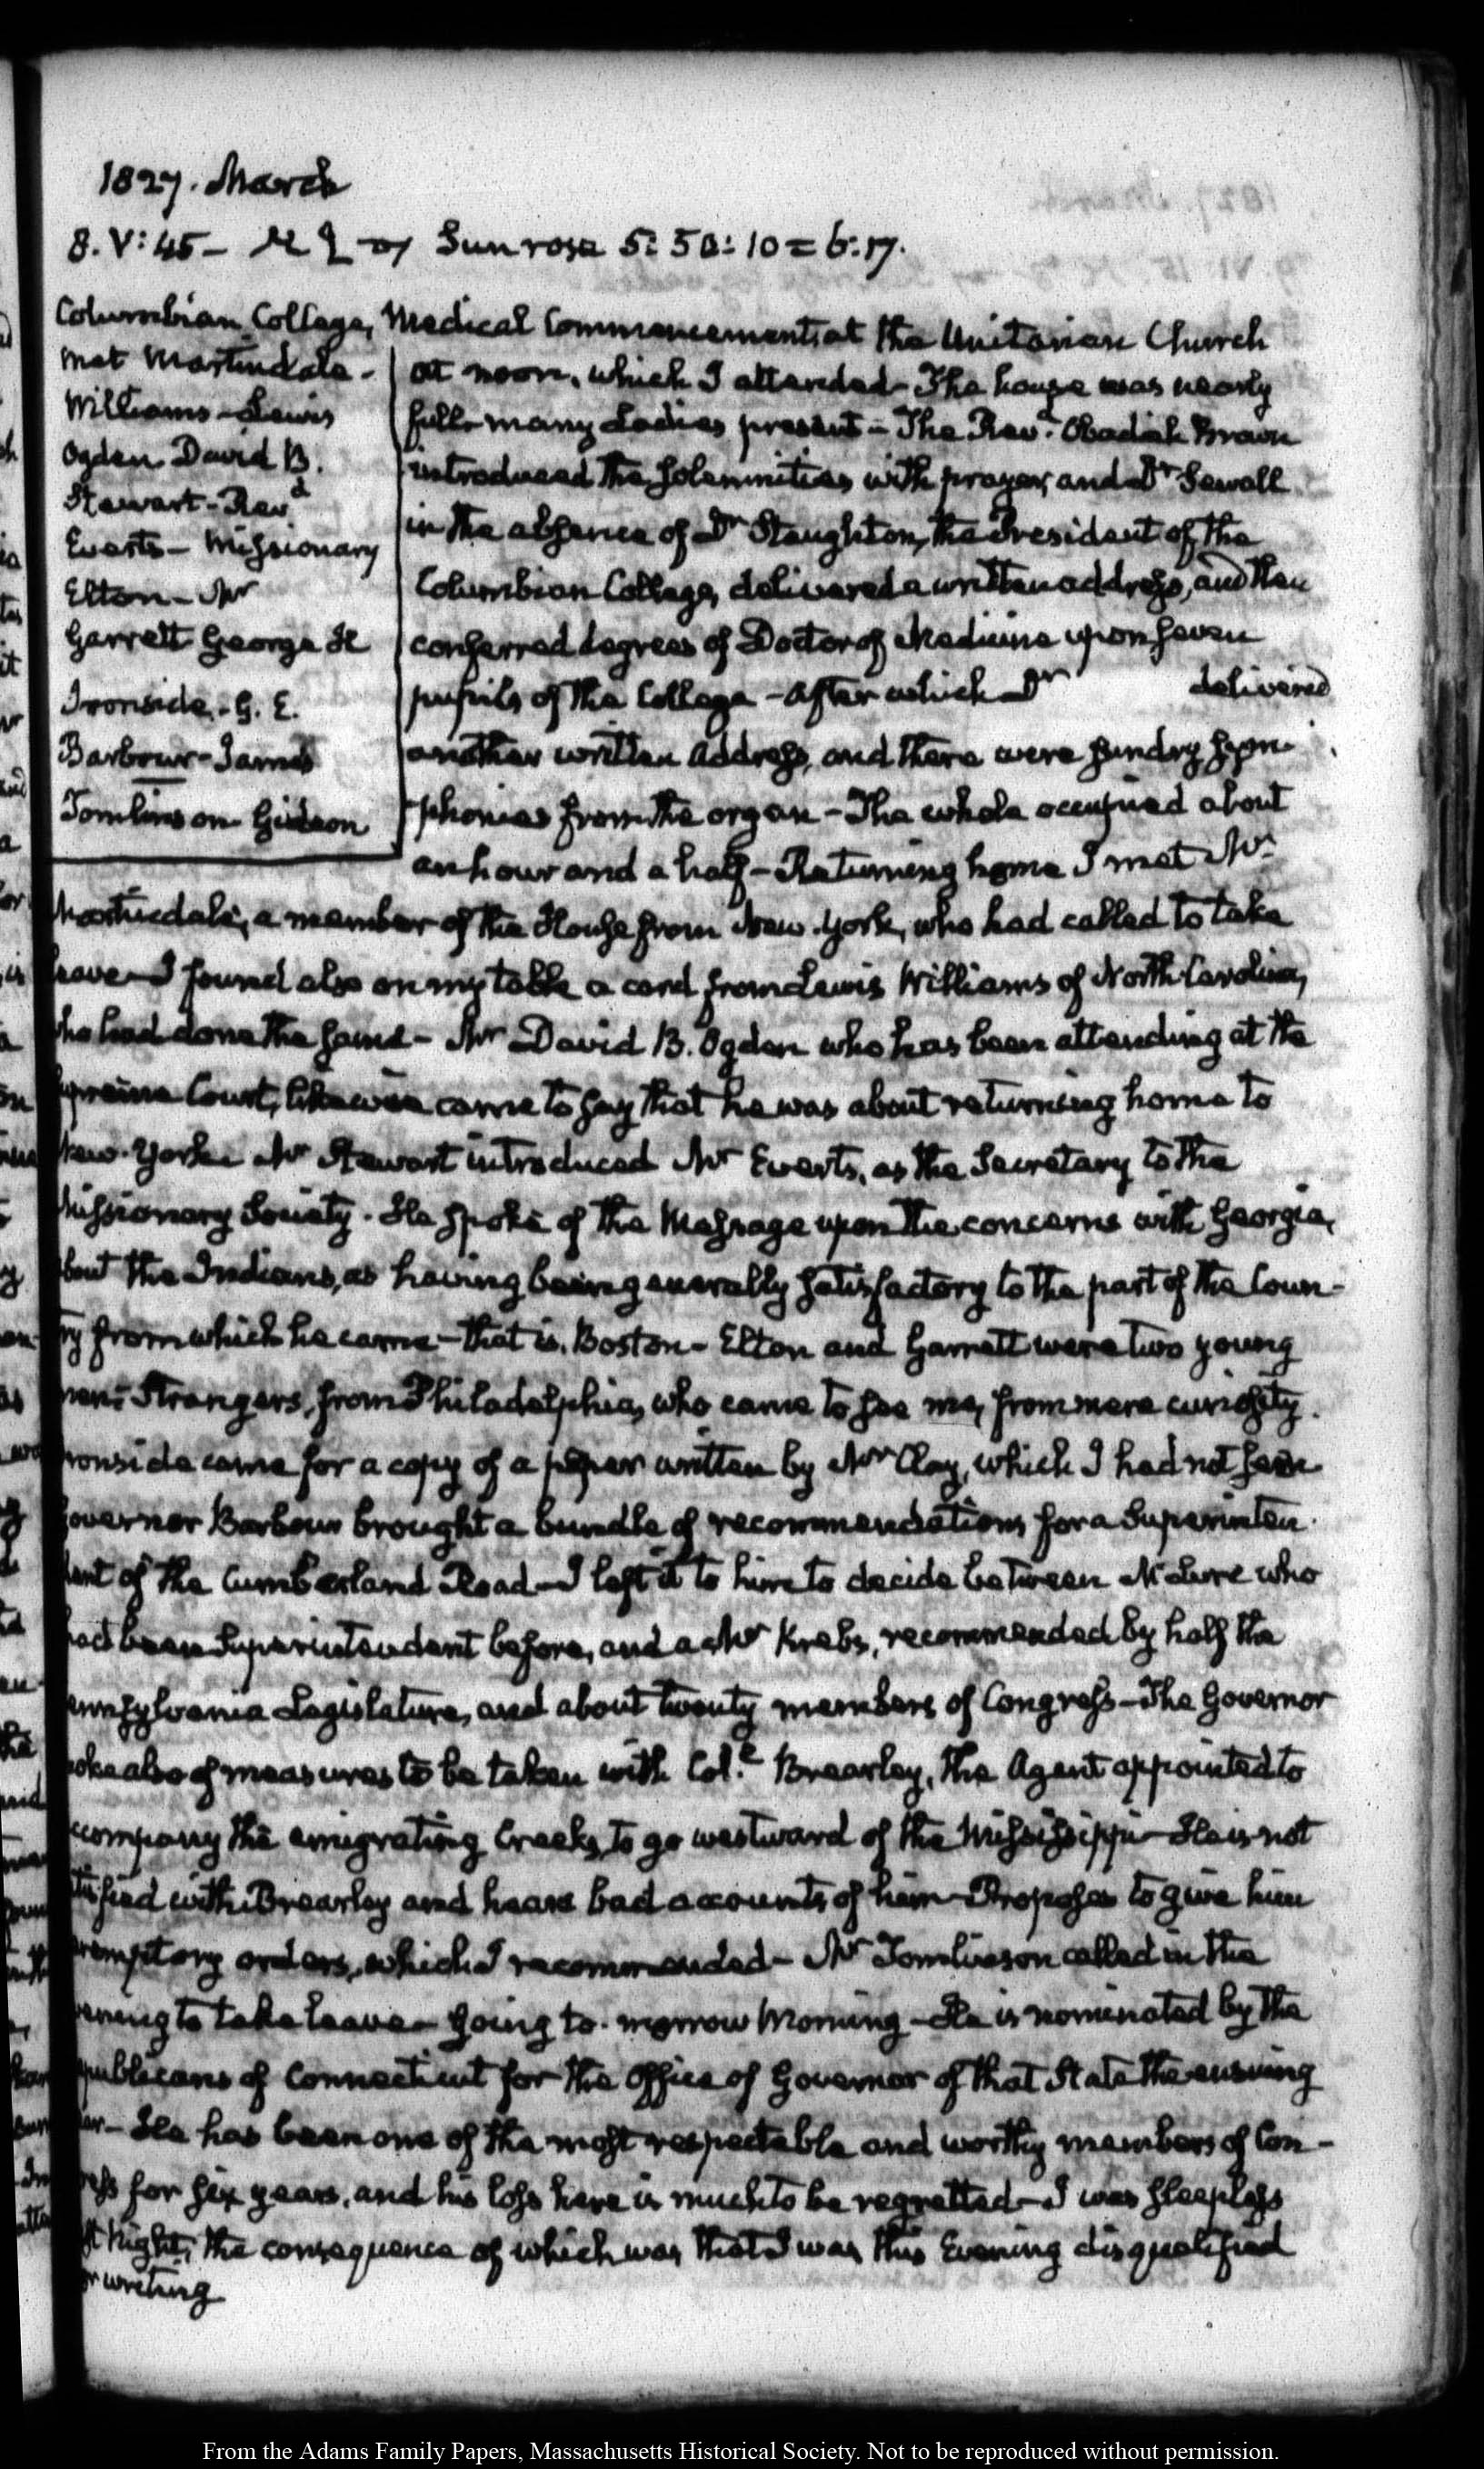 1827. March
8. V:45 - Sun rose 5:50:10 = 6:17.
Columbian College, Medical Commencement, at the Unitarian Church
met Martindale -
Williams - Lewis
Ogden David B.
Stewart - Revd
Evarts - Missionary
Elton - Mr
Garrett George H
Ironside - G. E.
Barbour - James
Tomlinson - Gideon
at noon, which I attended - The house was nearly
full - many Ladies present - The Revd. Obadiah Brown
introduced the solemnities with prayer, and Dr Sewall
in the absence of Dr Staughton, the President of the
Columbian College, delivered a written address, and then
conferred degrees of Doctor of Medicine upon seven
pupils of the College - After which Dr delivered
another written Address, and there were sundry sym-
phonies from the organ - The whole occupied about
an hour and a half - Returning home I met Mr
Martindale, a member of the House from New-York, who had called to take
leave - I found also on my table a card from Lewis Williams of North Carolina,
who had done the same - Mr David B. Ogden who has been attending at the
Supreme Court, likewise came to say that he was about returning home to
New-York - Mr Stewart introduced Mr Evarts, as the Secretary to the
Missionary Society - He spoke of the Message upon the concerns with Georgia,
about the Indians, as having being generally satisfactory to the part of the Coun-
try from which he came - that is, Boston - Elton and Garrett were two young
men - Strangers, from Philadelphia, who came to see me, from mere curiosity.
Ironside came for a copy of a paper written by Mr Clay, which I had not seen
Governor Barbour brought a bundle of recommendations for a Superinten-
dent of the Cumberland Road - I left it to him to decide between McLure who
had been Superintendent before, and a Mr Krebs, recommended by half the
Pennsylvania Legislature, and about twenty members of Congress - The Governor
spoke also of measures to be taken with Col. Brearley, the Agent appointed to
accompany the emigrating Creeks, to go westward of the Mississippi - He is not
satisfied with Brearley and hears bad accounts of him - Proposes to give him
peremptory orders, which I recommended - Mr Tomlinson called in the
evening to take leave - going to-morrow Morning - He is nominated by the
Republicans of Connecticut for the Office of Governor of that State the ensuing
year - He has been one of the most respectable and worthy members of Con-
gress for six years, and his loss here is much to be regretted - I was sleepless
last Night, the consequence of which was that I was this Evening disqualified
for writing
From the Adams Family Papers, Massachusetts Historical Society. Not to be reproduced without permission.